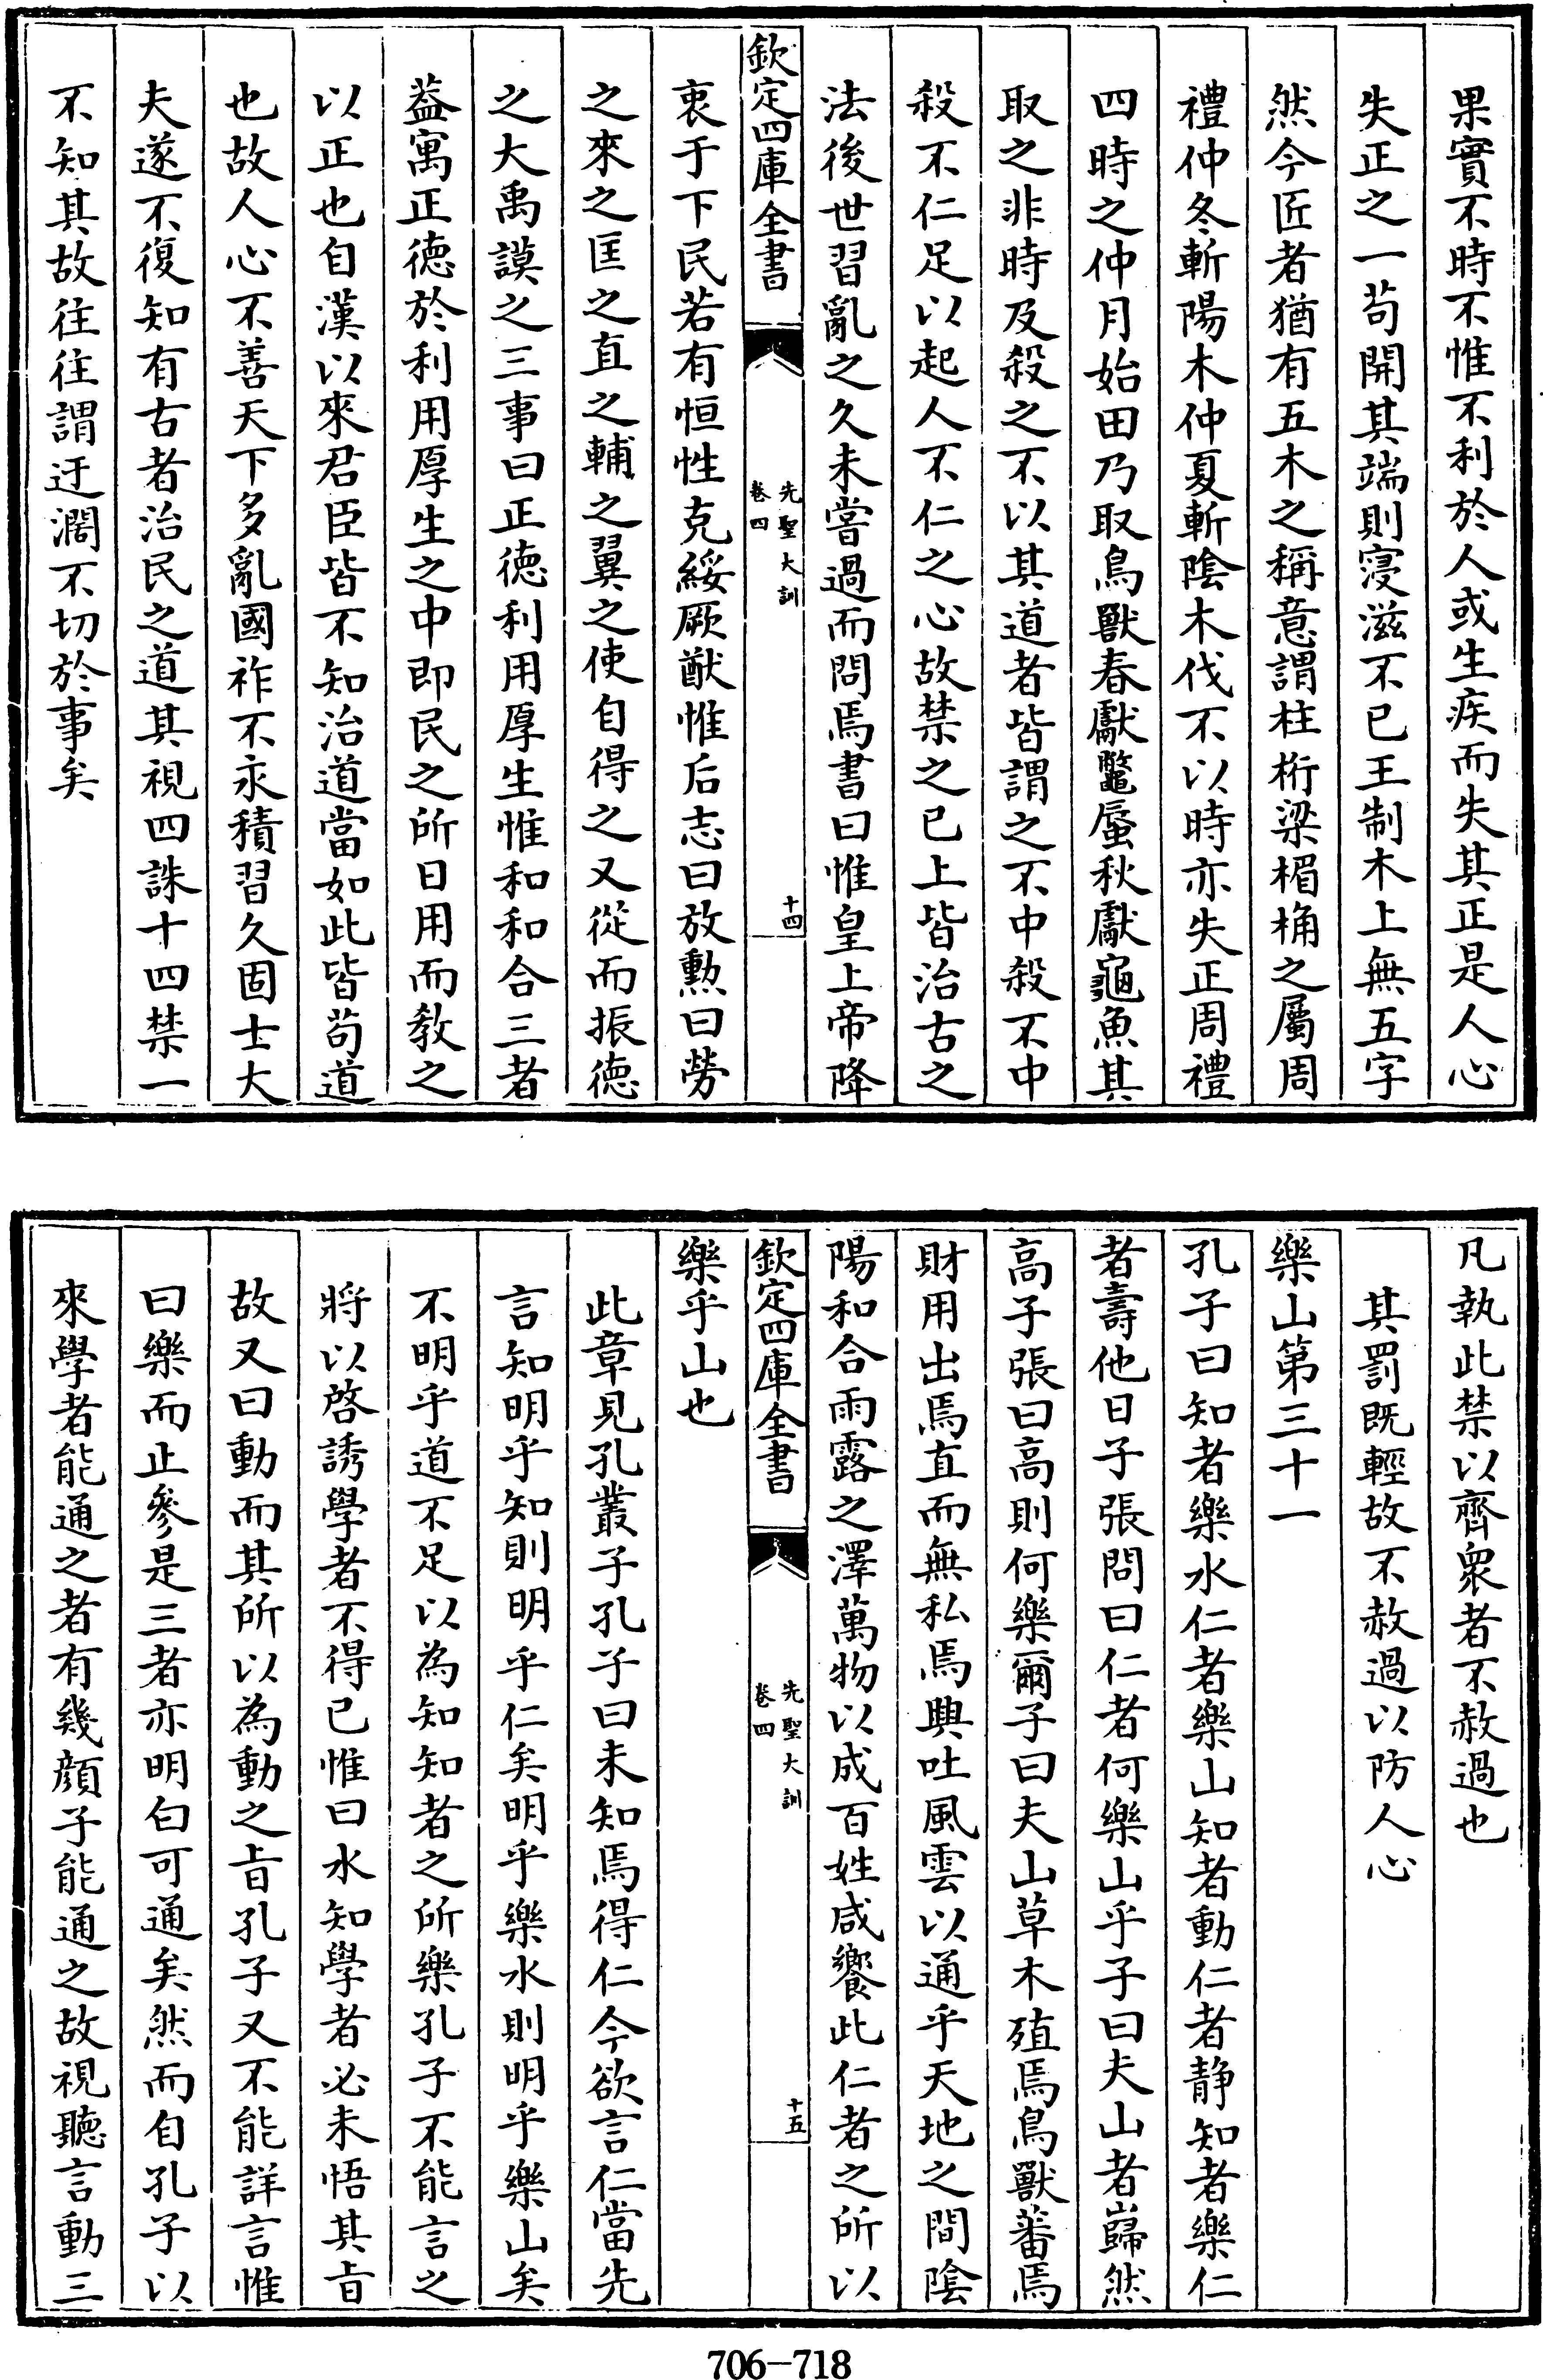 果實不時不惟不利於人或生疾而失其正是人心
失正之一茍開其端則寖滋不已王制木上無五字
然今匠者猶有五木之稱意謂柱桁梁楣桷之屬周
禮仲冬斬陽木仲夏斬陰木伐不以時亦失正周禮
四時之仲月始田乃取鳥獸春獻鼈蜃秋獻龜魚其
取之非時及殺之不以其道者皆謂之不中殺不中
殺不仁足以起人不仁之心故禁之已上皆治古之
法後世習亂之久未嘗過而問焉書曰惟皇上帝降
欽定四庫全書
先聖大訓
卷四
十四
衷于下民若有恒性克綏厥猷惟后志曰放勲曰勞
之來之匡之直之輔之翼之使自得之又從而振德
之大禹謨之三事曰正德利用厚生惟和和合三者
葢寓正德於利用厚生之中即民之所日用而敎之
以正也自漢以來君臣皆不知治道當如此皆茍道
也故人心不善天下多亂國祚不永積習久固士大
夫遂不復知有古者治民之道其視四誅十四禁一
不知其故往往謂迂濶不切於事矣
凡執此禁以齊衆者不赦過也
其罰既輕故不赦過以防人心
樂山第三十一
孔子曰知者樂水仁者樂山知者動仁者静知者樂仁
者壽他日子張問曰仁者何樂山乎子曰夫山者巋然
高子張曰高則何樂爾子曰夫山草木殖焉鳥獸蕃焉
財用出焉直而無私焉興吐風雲以通乎天地之間陰
陽和合雨露之澤萬物以成百姓咸饗此仁者之所以
欽定四庫全書
先聖大訓
卷四
十五
樂乎山也
此章見孔叢子孔子曰未知焉得仁今欲言仁當先
言知明乎知則明乎仁矣明乎樂水則明乎樂山矣
不明乎道不足以為知知者之所樂孔子不能言之
將以啓誘學者不得已惟曰水知學者必未悟其㫖
故又曰動而其所以為動之㫖孔子又不能詳言惟
曰樂而止參是三者亦明白可通矣然而自孔子以
來學者能通之者有幾顔子能通之故視聽言動三
706—718